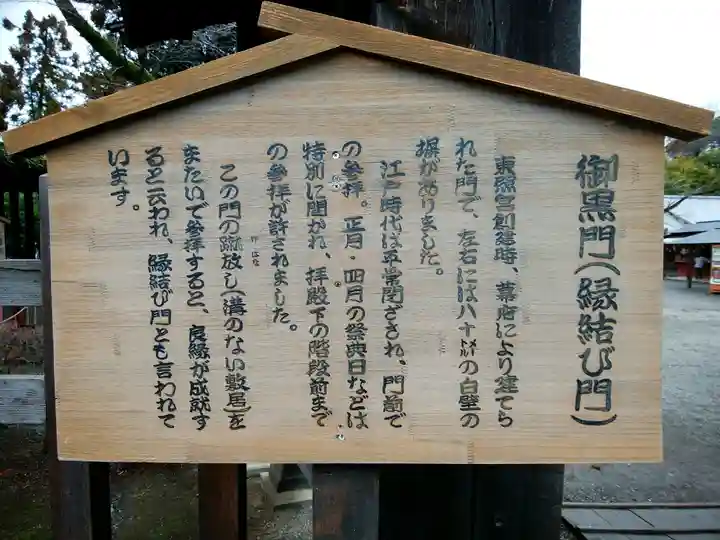 御黒門(縁結び門)
東照宮創建時、幕府により建てら
れた門で、左右には八十㍍の白壁の
塀がありました。
江戸時代は平常閉ざされ、門前で
の参拝。正月・四月の祭典日などは
特別に開かれ、拝殿下の階段前まで
の参拝が許されました。
この門の蹴放し(溝のない敷居)を
またいで参拝すると、良縁が成就す
ると云われ、縁結び門とも言われて
います。